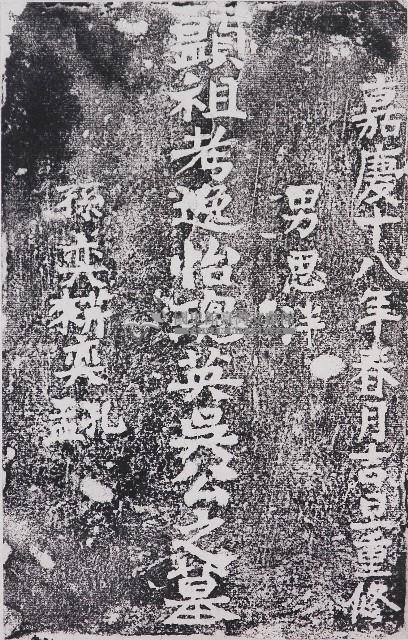 嘉慶十八年春月吉旦重修
男思泮
顯祖考逸怡琬英吳公之墓
孫奕耕奕